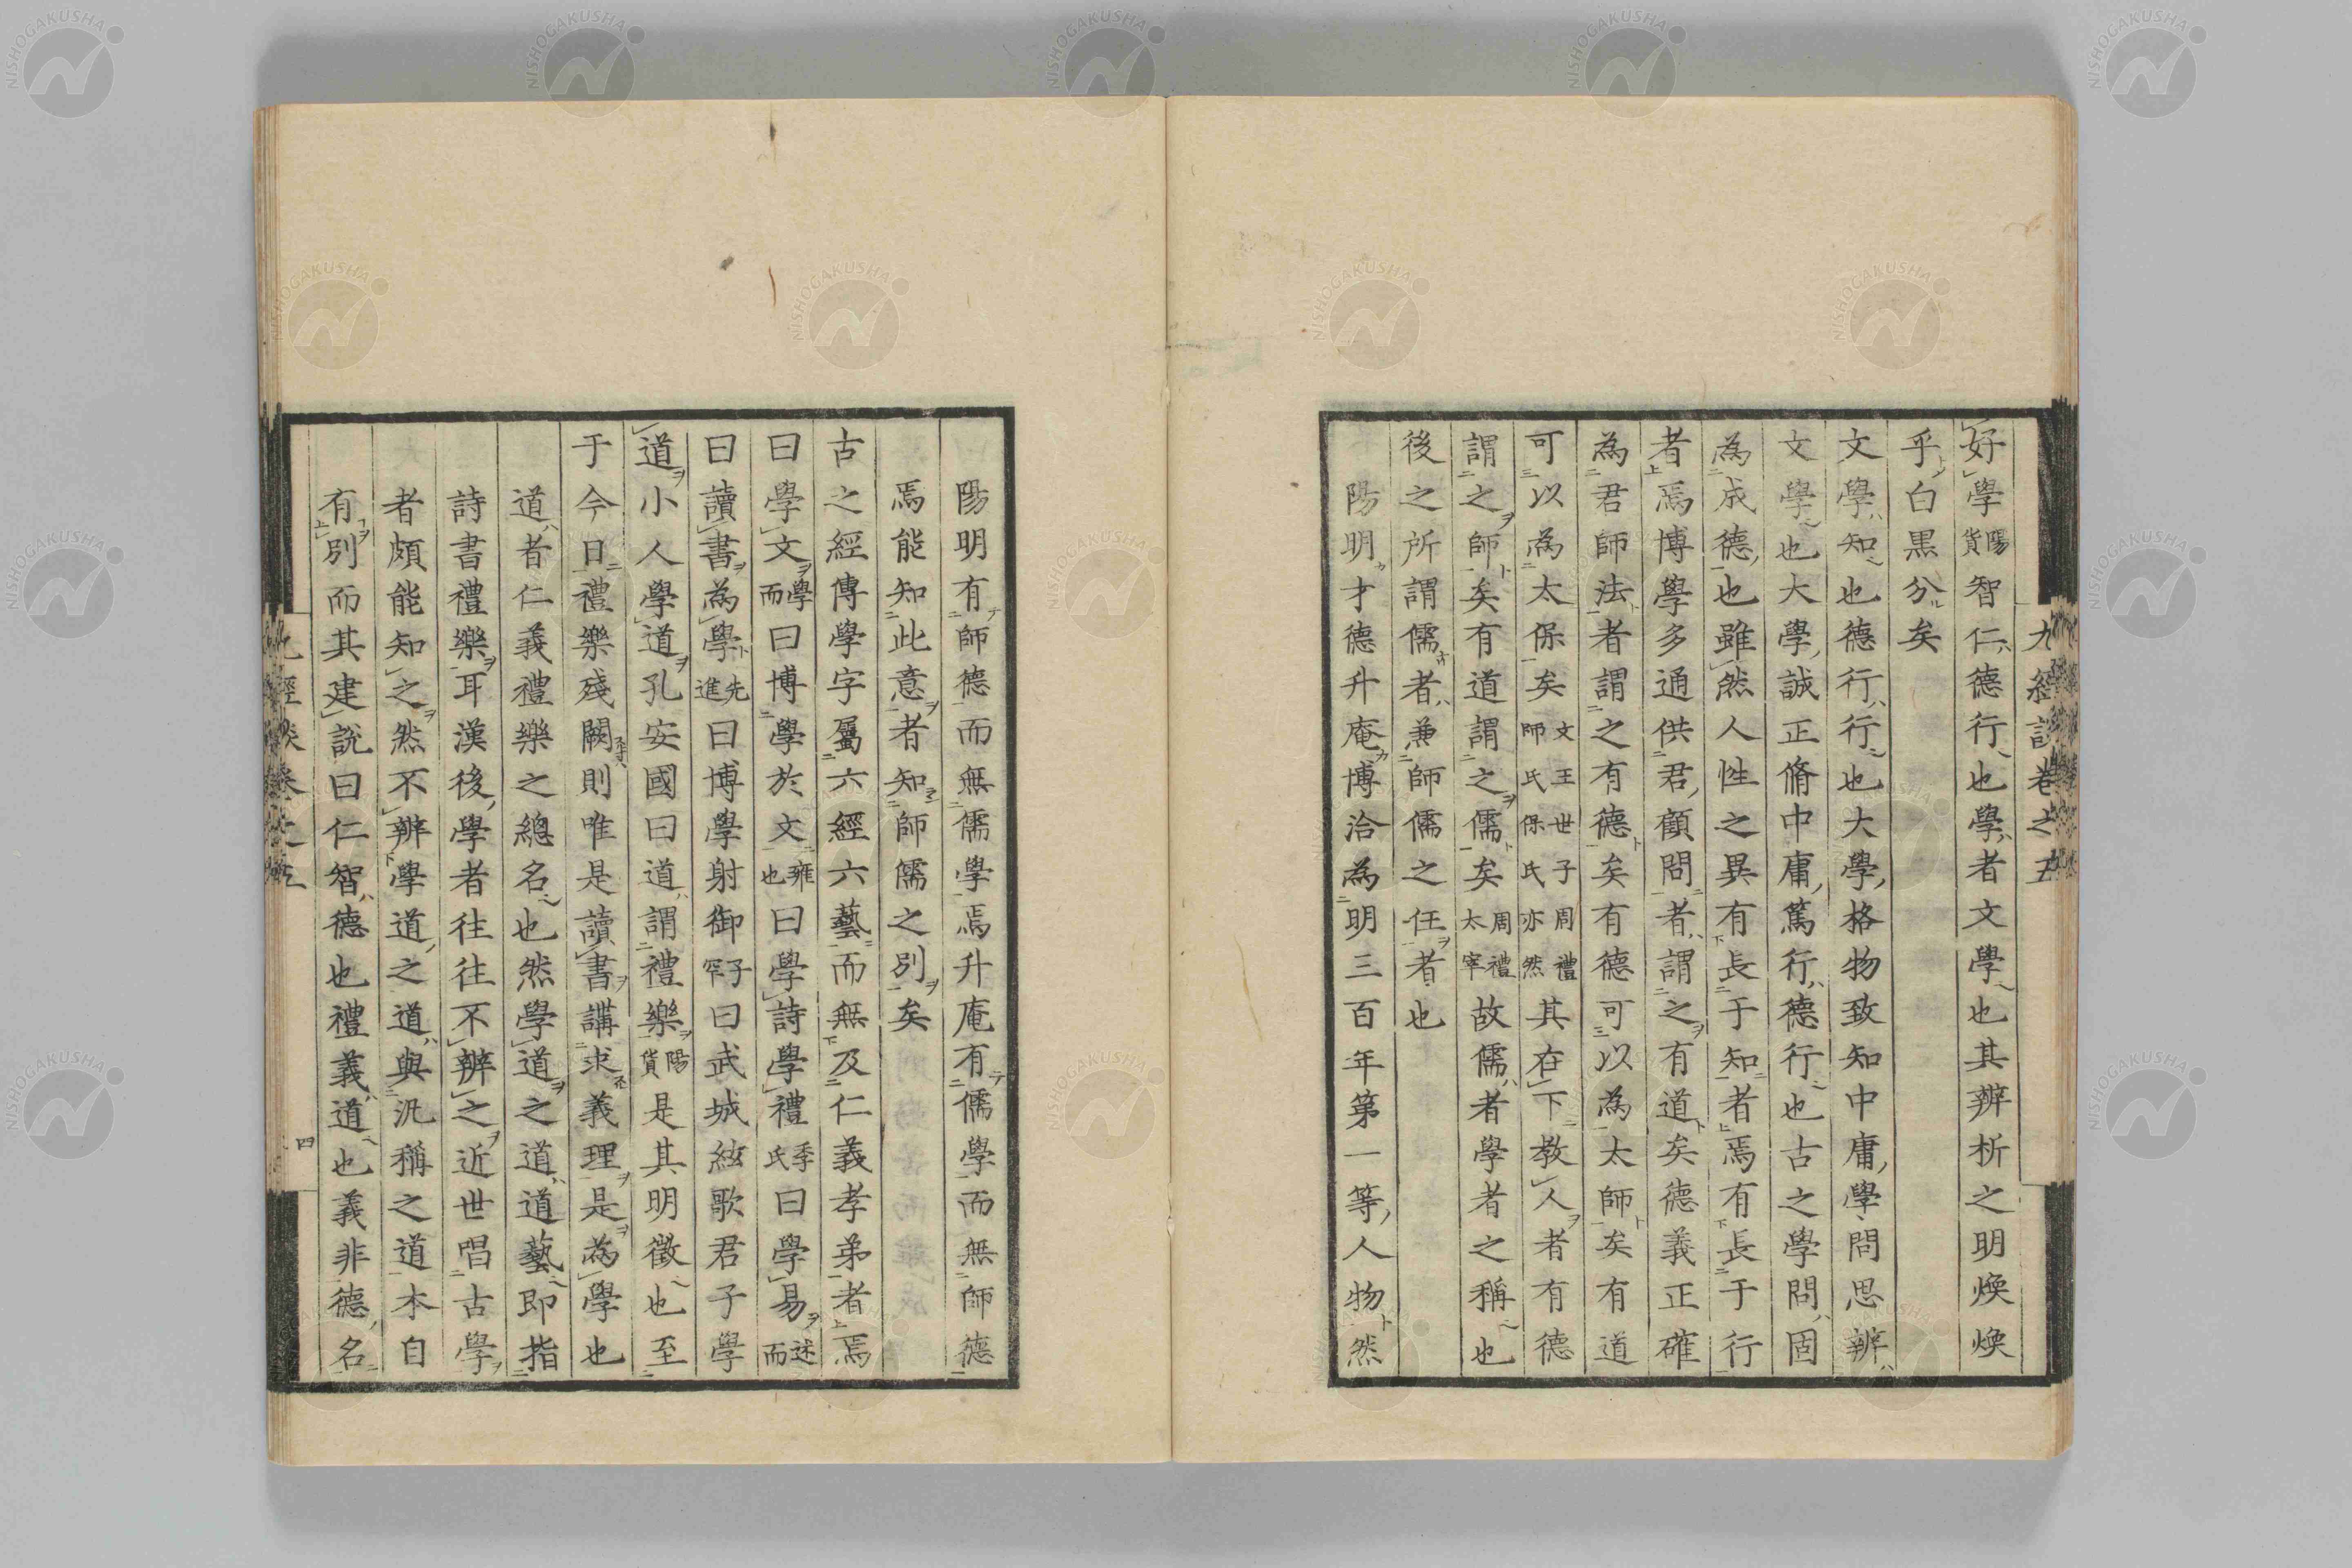 九經談卷之五
好學陽貨智仁德行也學者文學也其辨析之明煥煥
乎白黒分矣
文學知也德行行也大學格物致知中庸學問思辨
文學也大學誠正脩中庸篤行德行也古之學問固
為成德也雖然人性之異有長于知者焉有長于行
者焉博學多通供君顧問者謂之有道矣德義正確
為君師法者謂之有德矣有德可以為太師矣有道
可以為太保矣文王世子周禮師氏保氏亦然其在下教人者有德
謂之師矣有道謂之儒矣周禮太宰故儒者學者之稱也
後之所謂儒者兼師儒之任者也
陽明才德升庵博洽為明三百年第一等人物然
陽明有師德而無儒學焉升庵有儒學而無師德
焉能知此意者知師儒之別矣
古之經傳學字屬六經六藝而無及仁義孝弟者焉
曰學文學而曰博學於文雍也曰學詩學禮季氏曰學易述而
曰讀書為學先進曰博學射御子罕曰武城絃歌君子學
道小人學道孔安國曰道謂禮樂陽貨是其明徵也至
于今日禮樂殘闕則唯是讀書講求義理是為學也
道者仁義禮樂之總名也然學道之道道藝即指
詩書禮樂耳漢後學者往往不辨之近世唱古學
者頗能知之然不辨學道之道與汎稱之道本自
有別而其建說曰仁智德也禮義道也義非德名
四
NISHOGAKUSHA